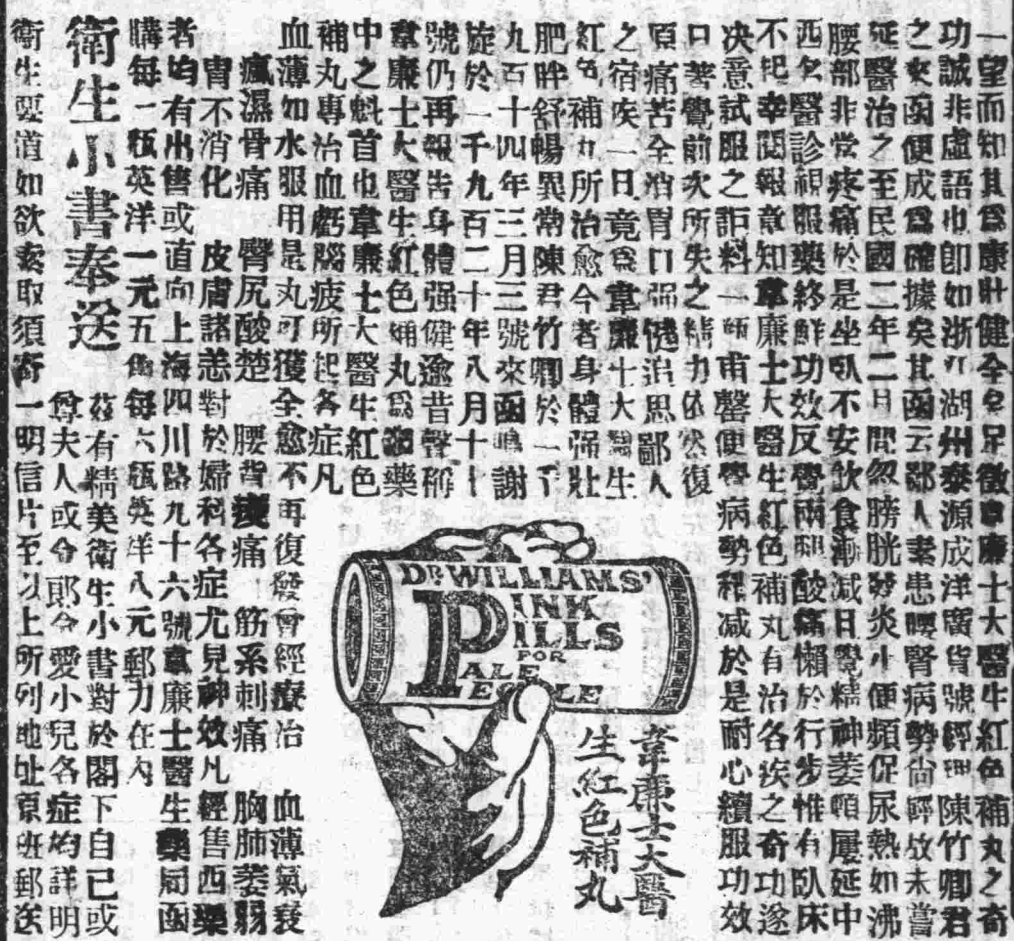 一望而知其爲康壯健全足徵韋廉士大醫生紅色補丸之奇
功誠非虛語也卽如浙江湖州泰源成洋廣貨號經理陳竹卿君
之來函便成爲確據矣其函云鄙人素患腰腎病勢尙輕故未嘗
延醫治之至民國二年二月間忽膀胱發炎小便頻促尿熱如沸
腰部非常疼痛於是坐臥不安飲食漸減日覺精神萎頓屢延中
西名醫診視服藥終鮮功效反覺兩腿酸痛懶於行步惟有臥床
不起幸閱報章知韋廉士大醫生紅色補丸有治各疾之奇功遂
决意試服之詎料一瓶甫罄便覺病勢稍减於是耐心續服功效
口著覺前次所失之精力依然復
原痛苦全消胃口强健追思鄙人
之宿疾一旦竟爲韋廉士大醫生
紅色補丸所治愈今者身體强壯
肥胖舒暢異常陳君竹卿於一千
九百十四年三月三號來函鳴謝
旋於一千九百二十年八月十七
號仍再報告身體强健逾昔聲稱
韋廉士大醫生紅色補丸爲補藥
中之魁首也韋廉士大醫生紅色
補丸專治血虧腦疲所起各症凡
血薄如水服用是丸可獲全愈不再復發曾經療治 血薄氣衰
瘋濕骨痛 臀尻酸楚 腰背疼痛 筋系刺痛 胸肺萎弱
胃不消化 皮膚諸恙對於婦科各症尤見神效凡經售西藥
者均有出售或直向上海四川路九十六號韋廉士醫生藥局函
購每一瓶英洋一元五角每六瓶英洋八元郵力在內
DR. WILLIAMS'
PINK
PILLS
FOR
PALE
PEOPLE
韋廉士大醫
生紅色補丸
衛生小書奉送
茲有精美衛生小書對於閣下自己或
尊夫人或令郎令愛小兒各症均詳明
衛生要道如欲索取須寄一明信片至以上所列地址原班郵送